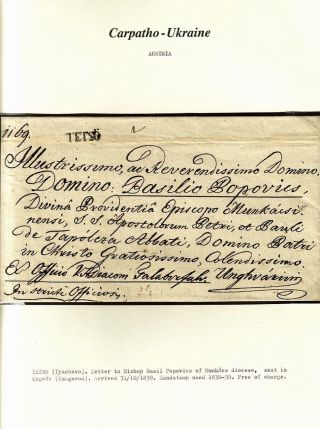 Carpatho-Ukraine
AUSTRIA
1169.
TETSÖ
Illustrissimo, ac Reverendissimo Domino,
Domino, Basilio Popovics,
Divina Providentia Episcopo Munkácsi-
nensi, S. S. Apostolorum Petri, et Pauli
de Tapolcza Abbati, Domino Patri
in Christo Gratiosissimo, Colendissimo.
Ex Officio Unghvárini
In seriete Officiosi.
TETSO (Tyachovo). Letter to Bishop Basil Popovics of Munkács diocese, sent in
Ungvár (Hungarou). Arrived 31/12/1839. Handstamp used 1830-50. Free of charge.